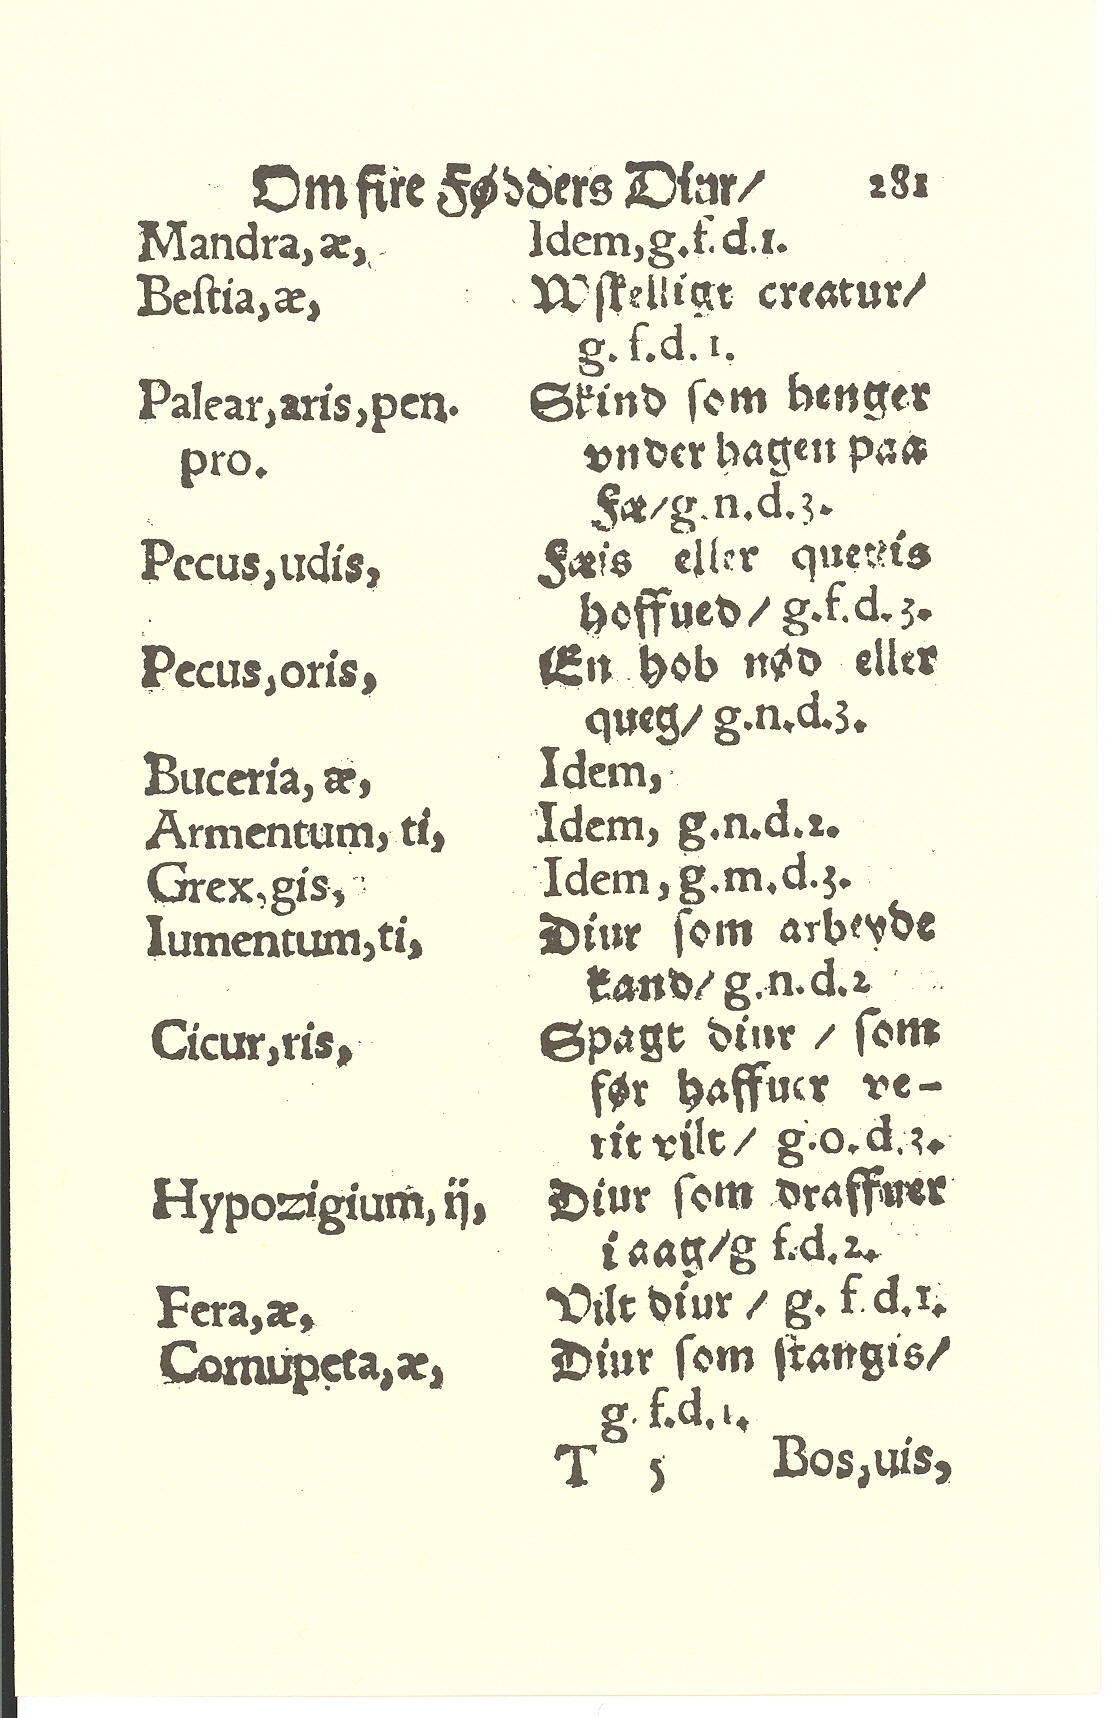 Om fire Fødders Diur/ 281
Mandra, æ, Idem, g.f.d.1.
Bestia, æ, Wskelligt creatur/
g. f.d. 1.
Palear, aris, pen. Skind som henger
pro. vnder hagen paa
Fæ/ g.n.d.3.
Pecus, udis, Fæis eller quegis
hoffued/ g.f.d.3.
Pecus, oris, En hob nød eller
queg/ g.n.d.3.
Buceria, æ, Idem,
Armentum, ti, Idem, g.n.d.2.
Grex, gis, Idem, g.m.d.3.
Iumentum, ti, Diur som arbeyde
kand/ g.n.d.2
Cicur, ris, Spagt diur / som
før haffuer ve-
rit vilt/ g.o.d.3.
Hypozigium, ij, Diur som draffuer
i aag/ g f.d.2.
Fera, æ, Vilt diur / g. f d.1.
Cornupeta, æ, Diur som stangis/
g. f.d.1.
T 5 Bos, uis,